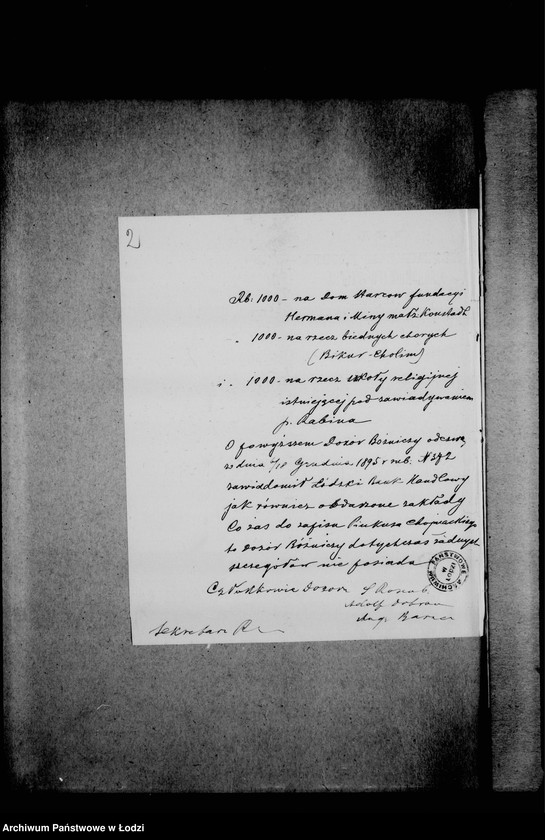 2
Rb: 1000 - na Dom Starcow fundacyi
Hermana i Miny małż Konstadt
" 1000 - na rzecz biednych chorych
(Bikur-Cholim)
i " 1000 - na rzecz szkoły religijnej
istniejącej pod zawiadywaniem
p. Rabina
O powyższem Dozór Bóżniczy odezwą
z dnia Grudnia 1895 r. № 372
zawiadomił Łódzki Bank Handlowy
jak również obdarzone zakłady
Co zaś do zapisu Pinkusa
to Dozór Bóżniczy dotychczas żadnych
szczegołów nie posiada
Członkowie Dozoru
Adolf Dobran
Sekretarz
ARCHIWUM PAŃSTWOWE W ŁODZI
Archiwum Państwowe w Łodzi